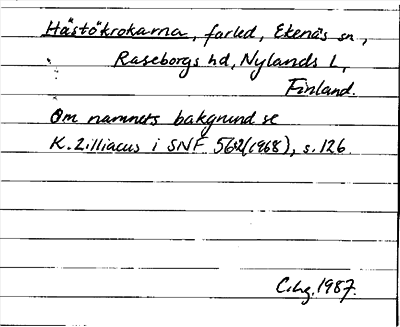 Hästökrokarna, farled, Ekenäs sn,
Raseborgs hd, Nylands l,
Finland.
Om namnets bakgrund se
K. Zilliacus i SNF 56 (1968), s. 126
1987.